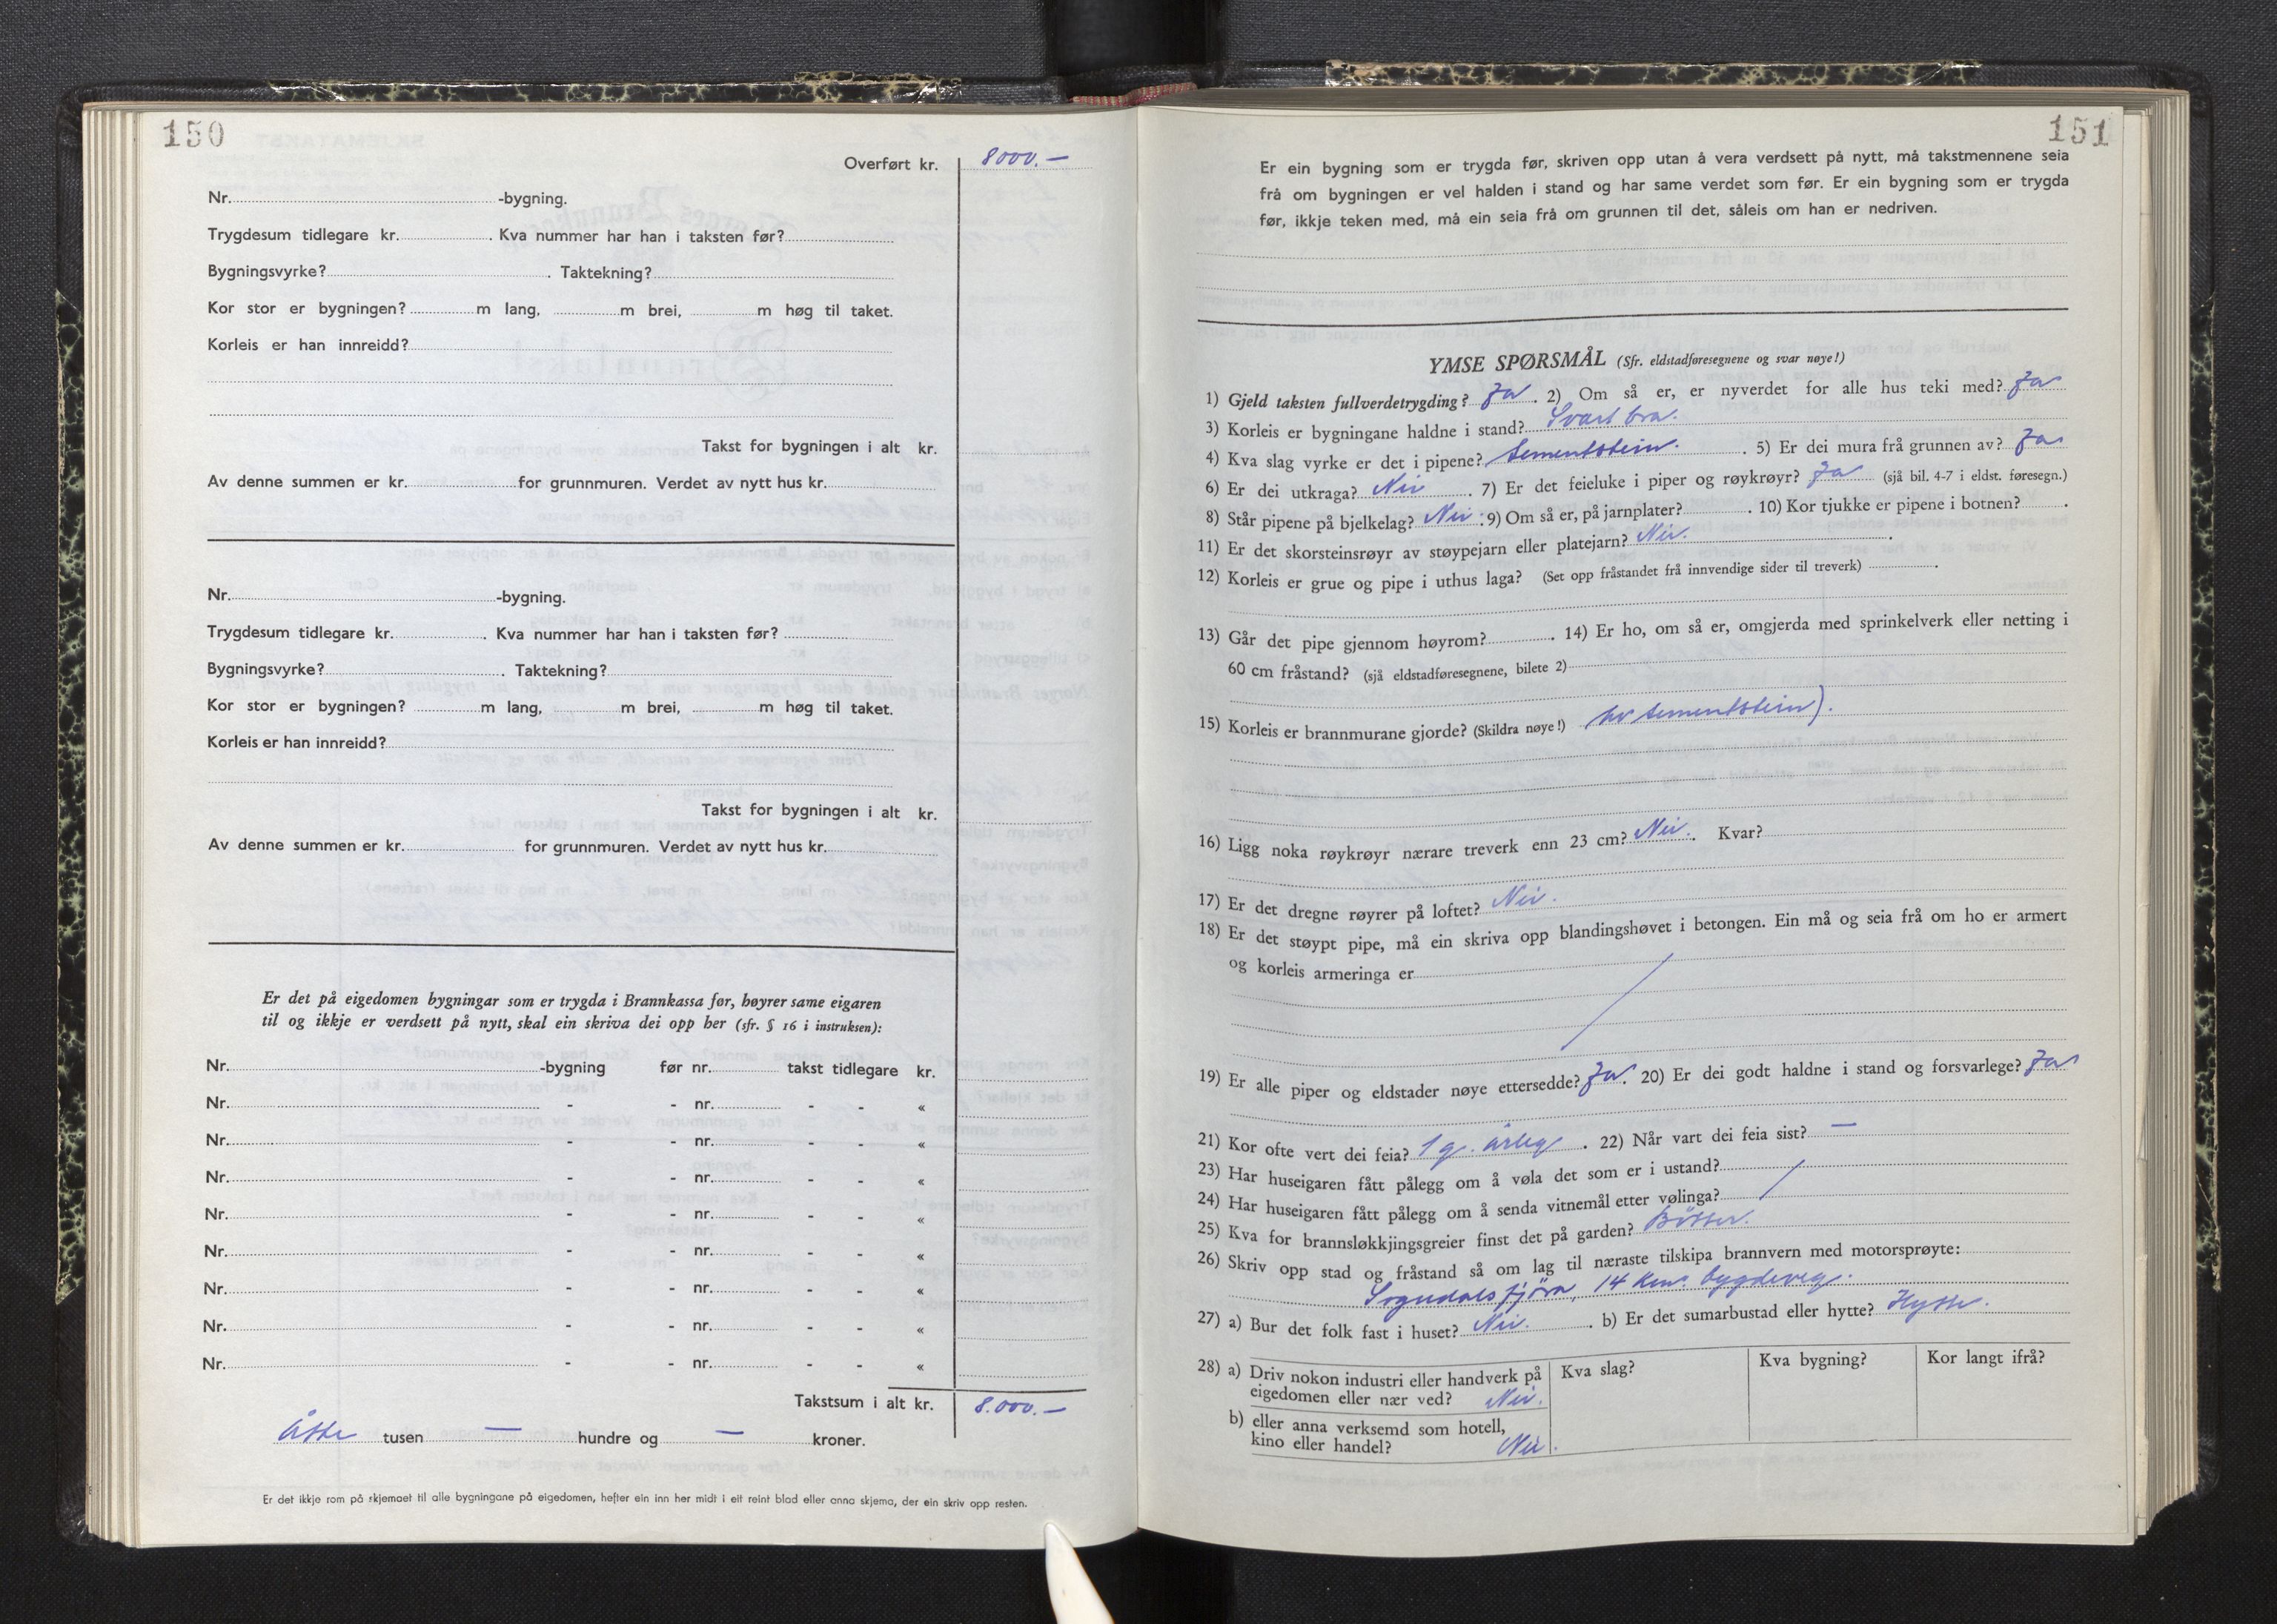 150
Overført kr. 8000.—
Nr. -bygning.
Trygdesum tidlegare kr. . Kva nummer har han i taksten før?
Bygningsvyrke? . Taktekning?
Kor stor er bygningen? m lang, m brei, m høg til taket.
Korleis er han innreidd?
Takst for bygningen i alt kr.
Av denne summen er kr. for grunnmuren. Verdet av nytt hus kr.
Nr. -bygning.
Trygdesum tidlegare kr. . Kva nummer har han i taksten før?
Bygningsvyrke? . Taktekning?
Kor stor er bygningen? m lang, m brei, m høg til taket.
Korleis er han innreidd?
Takst for bygningen i alt kr.
Av denne summen er kr. for grunnmuren. Verdet av nytt hus kr.
Er det på eigedomen bygningar som er trygda i Brannkassa før, høyrer same eigaren
til og ikkje er verdsett på nytt, skal ein skriva dei opp her (sfr. § 16 i instruksen):
Nr. -bygning før nr. takst tidlegare kr.
Nr. - - nr. - - «
Nr. - - nr. - - «
Nr. - - nr. - - «
Nr. - - nr. - - «
Nr. - - nr. - - «
Nr. - - nr. - - «
Nr. - - nr. - - «
Nr. - - nr. - - «
Takstsum i alt kr. 8.000.—
Åtte tusen — hundre og — kroner.
Er det ikkje rom på skjemaet til alle bygningane på eigedomen, hefter ein inn her midt i eit reint blad eller anna skjema, der ein skriv opp resten.
151
Er ein bygning som er trygda før, skriven opp utan å vera verdsett på nytt, må takstmennene seia
frå om bygningen er vel halden i stand og har same verdet som før. Er ein bygning som er trygda
før, ikkje teken med, må ein seia frå om grunnen til det, såleis om han er nedriven.
YMSE SPØRSMÅL (Sfr. eldstadføresegnene og svar nøye!)
1) Gjeld taksten fullverdetrygding? Ja . 2) Om så er, er nyverdet for alle hus teki med? Ja
3) Korleis er bygningane haldne i stand? Svært bra.
4) Kva slag vyrke er det i pipene? Sementstein. . 5) Er dei mura frå grunnen av? Ja
6) Er dei utkraga? Nei . 7) Er det feieluke i piper og røykrøyr? Ja (sjå bil. 4-7 i eldst. føresegn.)
8) Står pipene på bjelkelag? Nei . 9) Om så er, på jarnplater? . 10) Kor tjukke er pipene i botnen? .
11) Er det skorsteinsrøyr av støypejarn eller platejarn? Nei. .
12) Korleis er grue og pipe i uthus laga? (Set opp fråstandet frå innvendige sider til treverk) .
13) Går det pipe gjennom høyrom? . 14) Er ho, om så er, omgjerda med sprinkelverk eller netting i
60 cm fråstand? (sjå eldstadføresegnene, bilete 2)
15) Korleis er brannmurane gjorde? (Skildra nøye!) av sementstein).
16) Ligg noka røykrøyr nærare treverk enn 23 cm? Nei. . Kvar?
17) Er det dregne røyrer på loftet? Nei.
18) Er det støypt pipe, må ein skriva opp blandingshøvet i betongen. Ein må og seia frå om ho er armert
og korleis armeringa er /
19) Er alle piper og eldstader nøye ettersedde? Ja . 20) Er dei godt haldne i stand og forsvarlege? Ja
21) Kor ofte vert dei feia? 1 g. årleg . 22) Når vart dei feia sist? —
23) Har huseigaren fått pålegg om å vøla det som er i ustand?
24) Har huseigaren fått pålegg om å senda vitnemål etter vølinga? /
25) Kva for brannsløkkjingsgreier finst det på garden? Bøtter.
26) Skriv opp stad og fråstand så om lag til næraste tilskipa brannvern med motorsprøyte:
Sogndalsfjøra, 14 km. bygdeveg.
27) a) Bur det folk fast i huset? Nei. . b) Er det sumarbustad eller hytte? Hytte.
28) a) Driv nokon industri eller handverk på Kva slag? Kva bygning? Kor langt ifrå?
eigedomen eller nær ved? Nei.
b) eller anna verksemd som hotell,
kino eller handel? Nei.